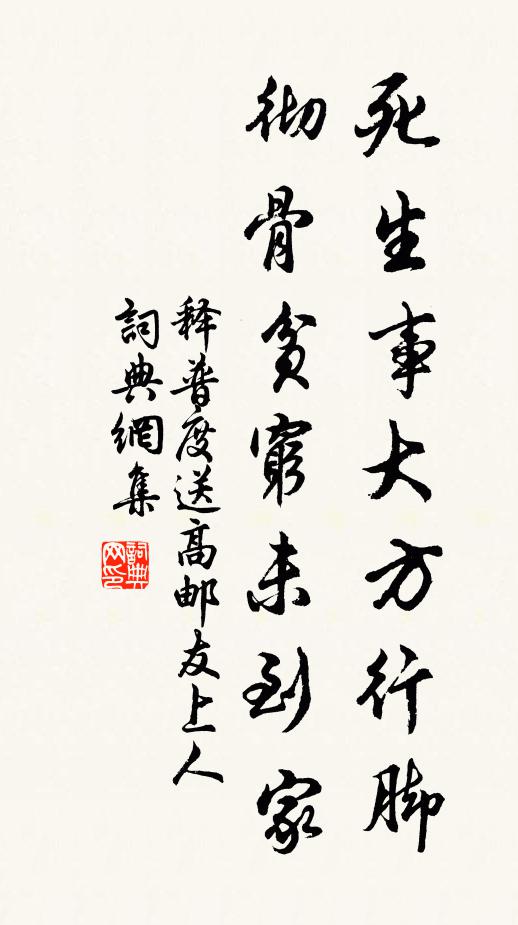 死生事大方行脚
彻骨贫窮未到家
释普度送高邮友上人
詞典網集
詞典网印